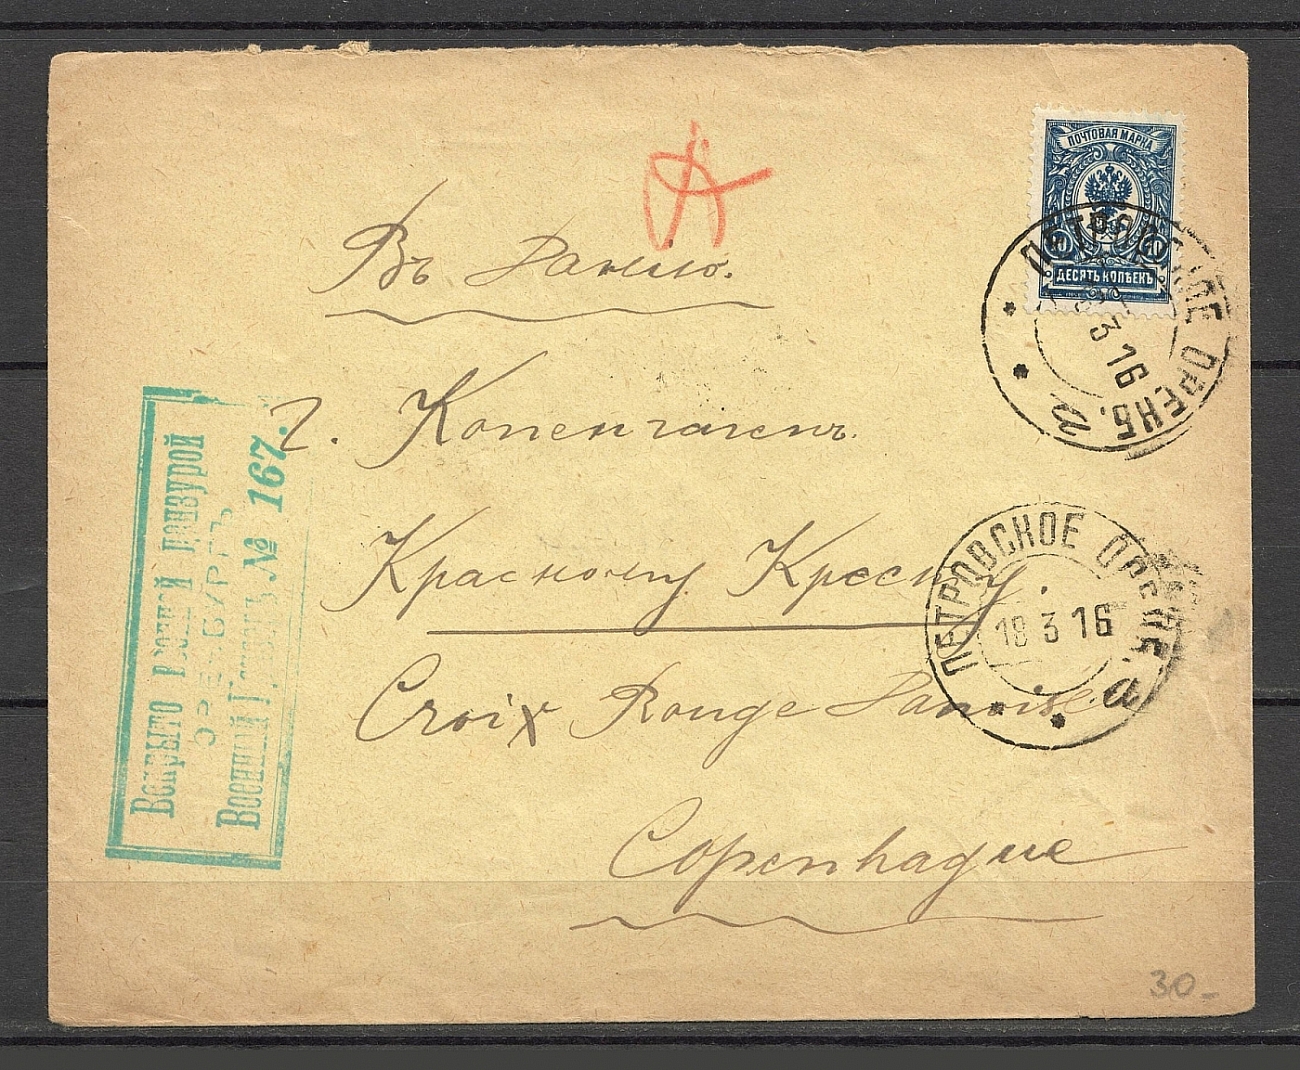 ПОЧТОВАЯ МАРКА
10 10
ДЕСЯТЬ КОПѢЕКЪ
ПЕТРОВСКОЕ ОРЕНБ. а
3 16
Въ Данію.
г. Копенгагенъ.
Красному Кресту
Croix Rouge Danoise
Copenhague
ПЕТРОВСКОЕ ОРЕНБ. а
18 3 16
Вскрыто военной цензурой
ОРЕНБУРГЪ
Военный Цензоръ № 167.
30-